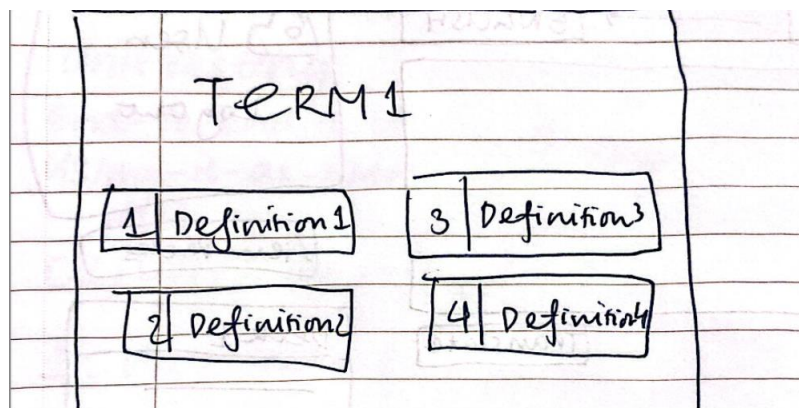 TERM 1
1 Definition 1
3 Definition 3
2 Definition 2
4 Definition 4